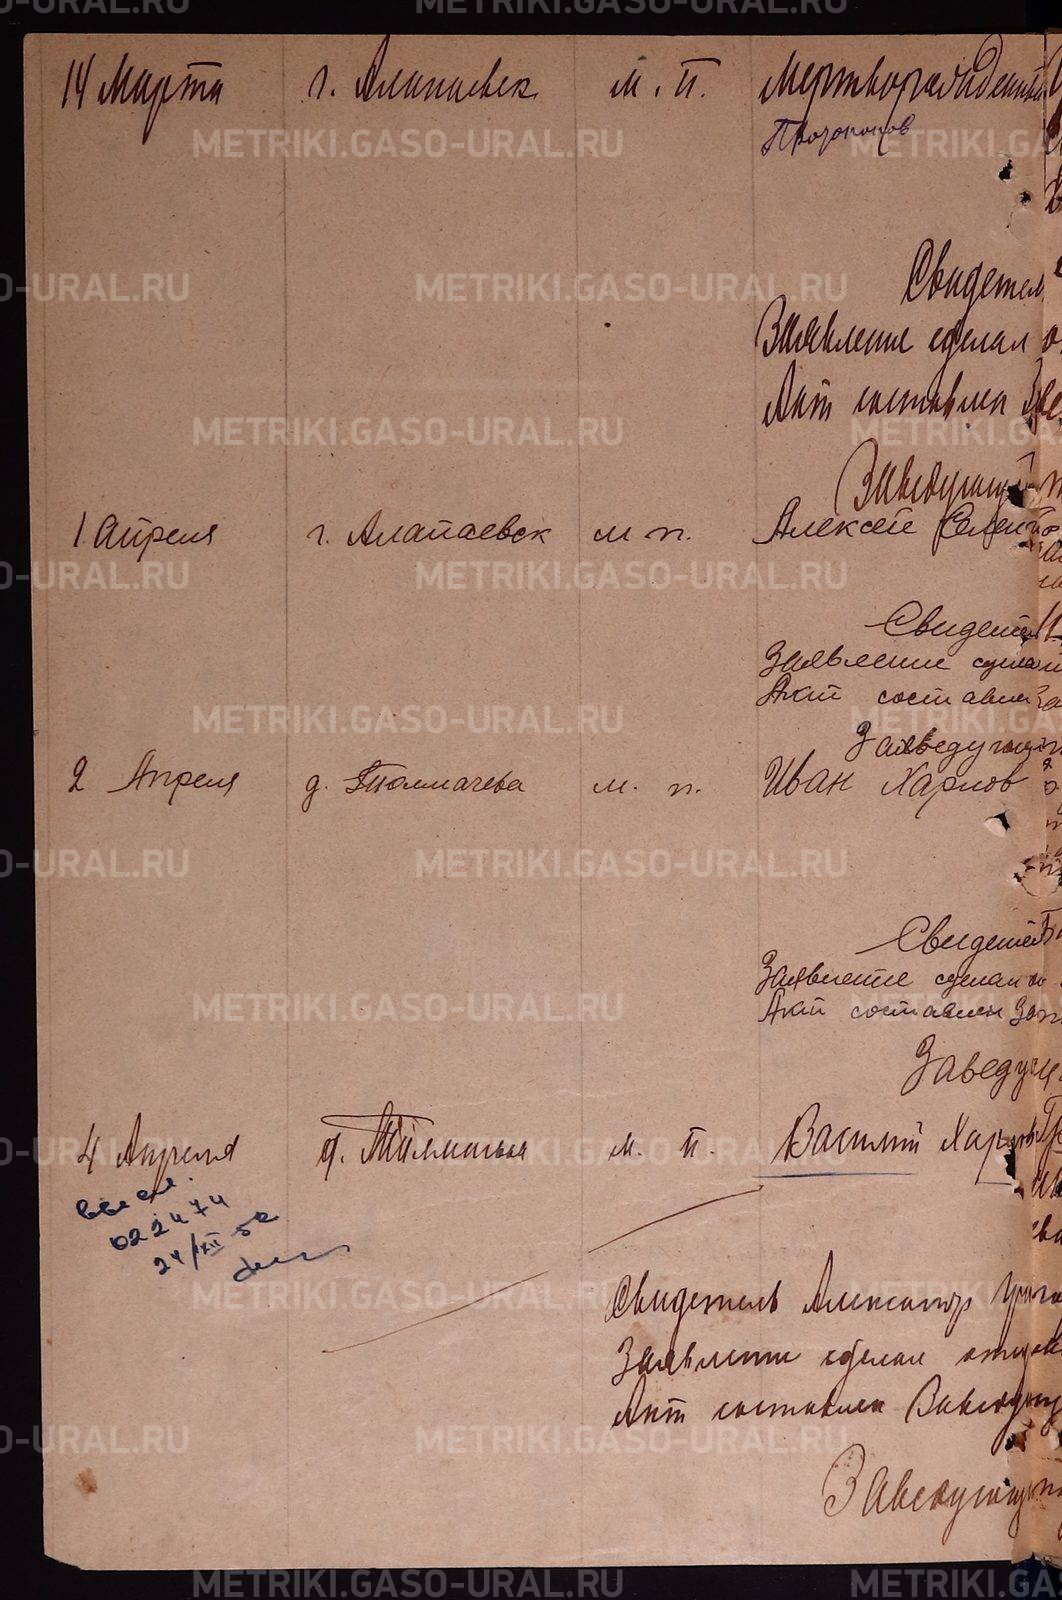 14 Марта г. Алапаевск м. п. Мертворожденный
Пророков
Свидетел
Заявление сделал о
Акт составлен
Заведующий
1 Апреля г. Алапаевск м п. Алексей
Свидетел
Заявление сдела
Акт составлен За
Заведующ
2 Апреля д. Толмачева м. п. Иван Харлов
Свидетел
Заявление сделано
Акт составлен Зап
Заведующ
4 Апреля д. Толмачева м. п. Василий Харлов
022474
24/XII 52
Свидетель Александр
Заявление сделал отцов
Акт составлен Заведующ
Заведующ
METRIKI.GASO-URAL.RU